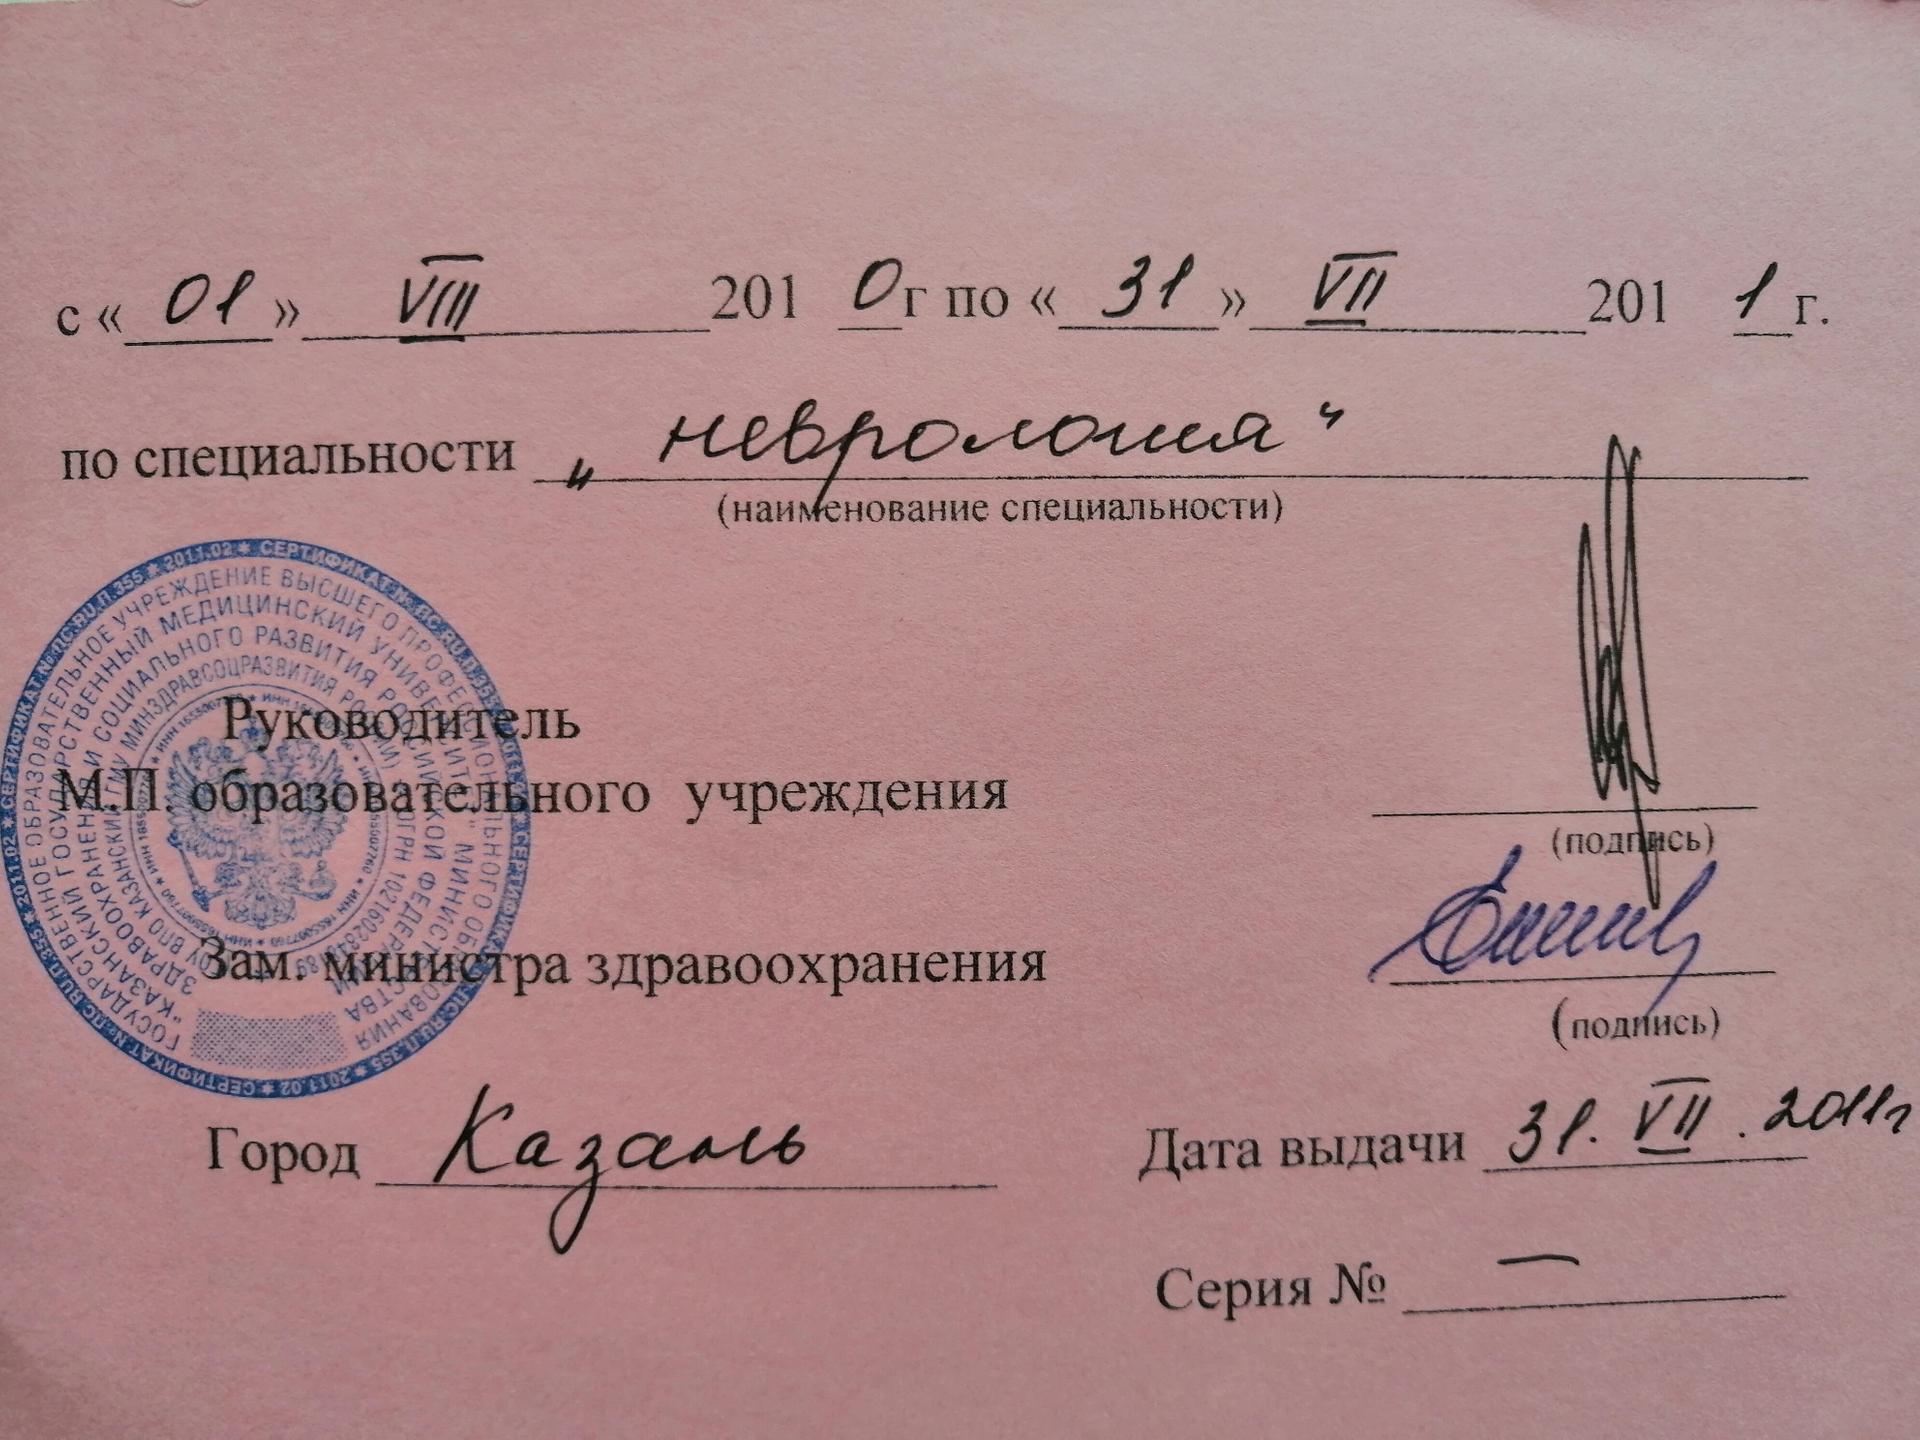 с « 01 » VIII 2010г по « 31 » VII 2011г.
по специальности „ неврология “
(наименование специальности)
Руководитель
М.П. образовательного учреждения
(подпись)
Зам. министра здравоохранения
(подпись)
Город Казань
Дата выдачи 31. VII . 2011г
Серия № —
СЕРТИФИКАТ № ПС.RU.П.355 * 2011.02 *
ГОСУДАРСТВЕННОЕ ОБРАЗОВАТЕЛЬНОЕ УЧРЕЖДЕНИЕ ВЫСШЕГО ПРОФЕССИОНАЛЬНОГО ОБРАЗОВАНИЯ
"КАЗАНСКИЙ ГОСУДАРСТВЕННЫЙ МЕДИЦИНСКИЙ УНИВЕРСИТЕТ" МИНИСТЕРСТВА
ЗДРАВООХРАНЕНИЯ И СОЦИАЛЬНОГО РАЗВИТИЯ РОССИЙСКОЙ ФЕДЕРАЦИИ
ВПО КАЗАНСКИЙ ГМУ МИНЗДРАВСОЦРАЗВИТИЯ РОССИИ) ОГРН